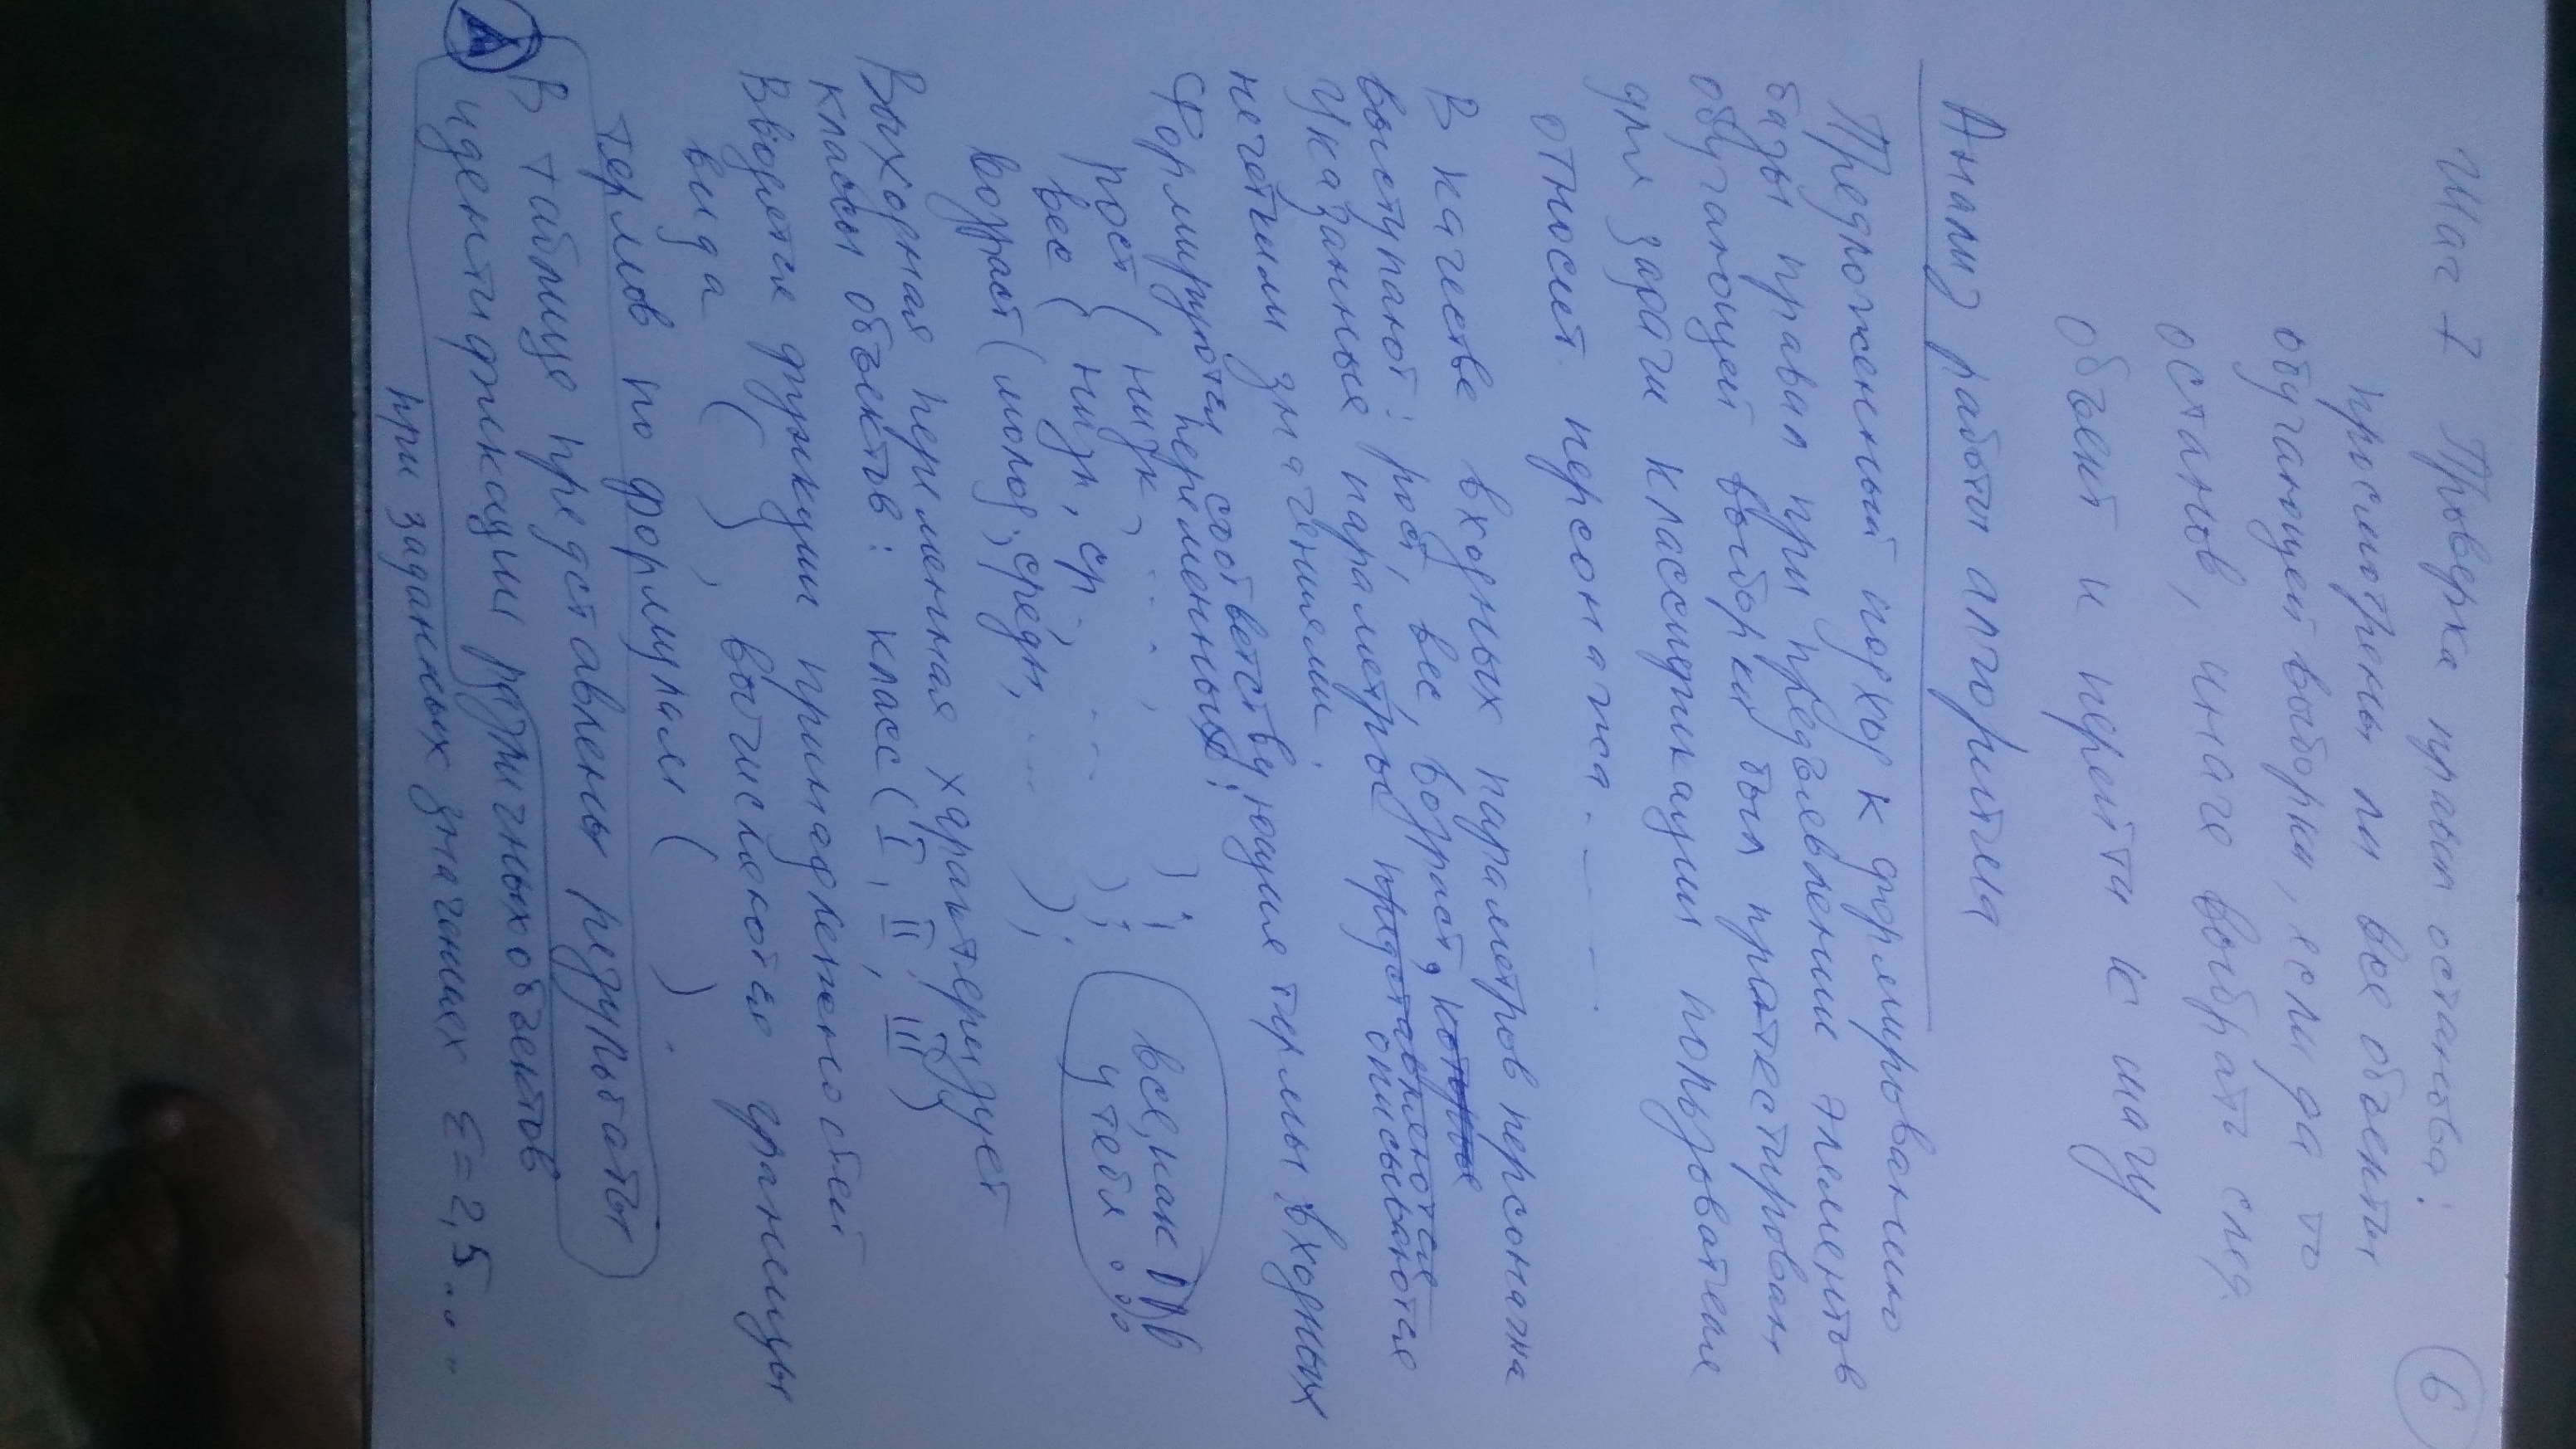 6
Шаг 7 Проверка правил останова:
просмотрены ли все объекты
обучающей выборки, если да то
останов, иначе выбрать след.
объект и перейти к шагу
Анализ работы алгоритма
Предложенный подход к формированию
базы правил при предъявлении элементов
обучающей выборки был протестирован
для задачи классификации пользователя
относит. персонажа . - - -
В качестве входных параметров персонажа
выступают: рост, вес, возраст, которые
Указанные параметры представляются описываются
нечеткими значениями.
Формируются соответствующие термы входных
переменных:
рост (низк, . . . , );
вес (низк, ср., - - - );
возраст (молод, средн, - - - );
все, как у тебя
Выходная переменная характеризует
классы объектов: класс (I, II, III)
Вводятся функции принадлежностей
вида ( ), вычисляются границы
термов по формулам ( ).
В таблице представлены результаты
идентификации различных объектов
при заданных значениях ε = 2,5 ...